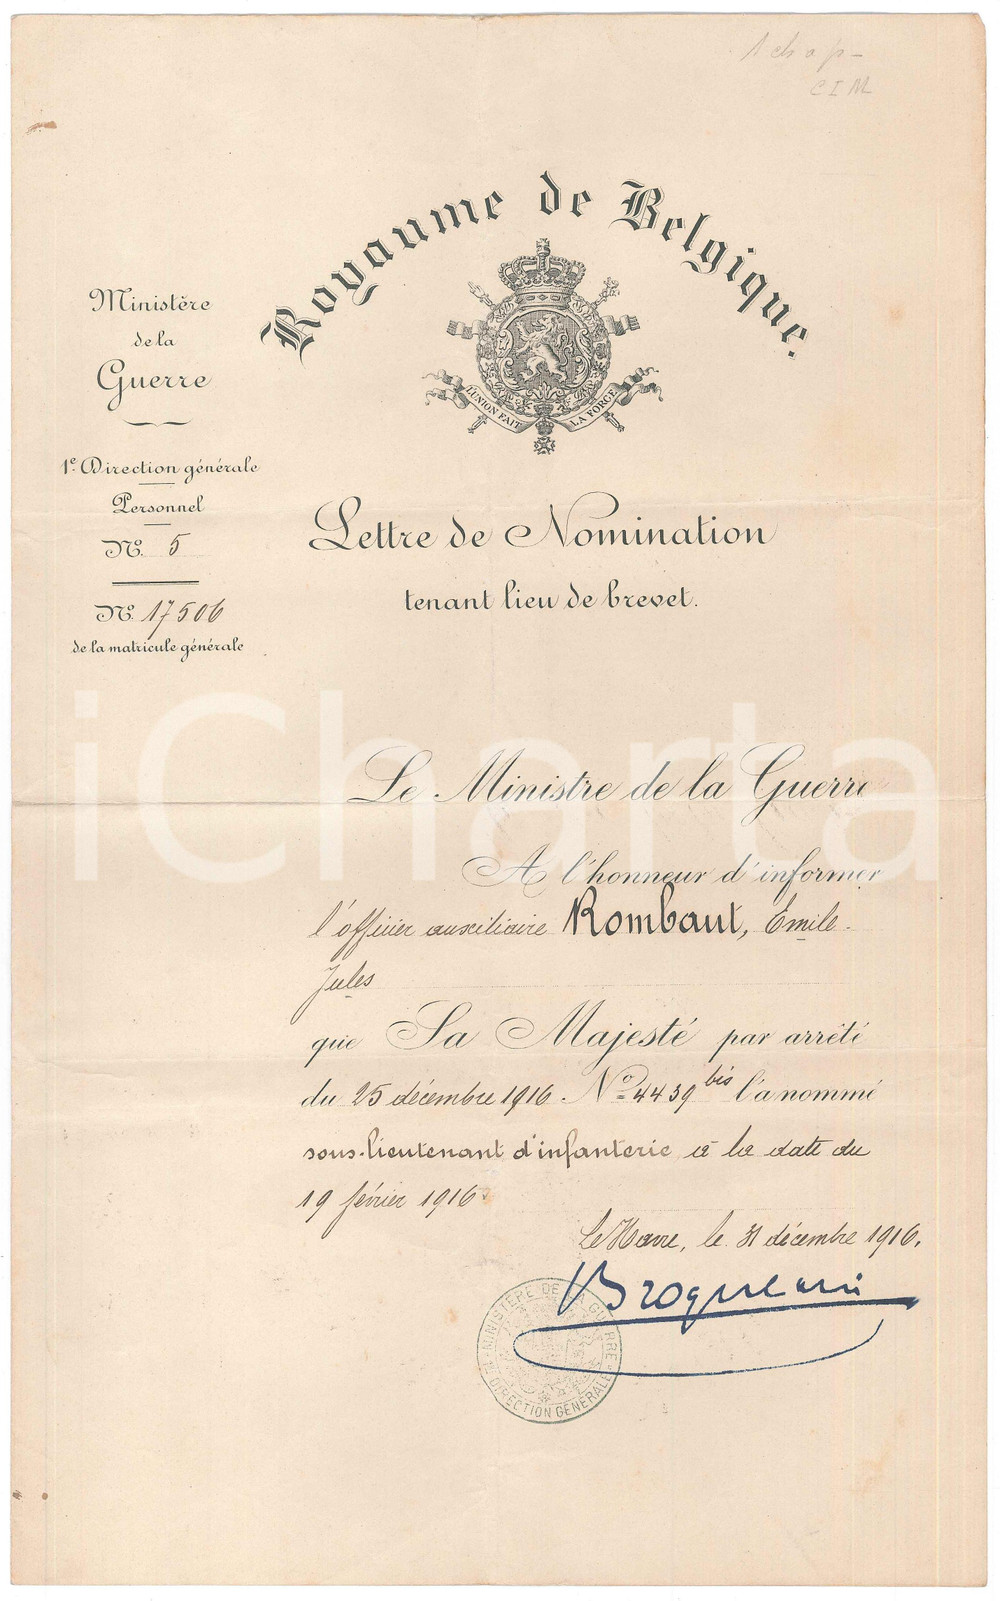 1 chap-
CIM
Royaume de Belgique.
L'UNION FAIT LA FORCE
Ministère
de la
Guerre
1e Direction générale
Personnel
No. 5
No. 17506
de la matricule générale
Lettre de Nomination
tenant lieu de brevet.
iCharta
Le Ministre de la Guerre
A l'honneur d'informer
l'officier auxiliaire Rombaut, Emile-
Jules
que Sa Majesté par arrêté
du 25 décembre 1916. No 4439 bis l'a nommé
sous-lieutenant d'infanterie à la date du
19 février 1916.
Le Havre, le 31 décembre 1916.
Broqueville
MINISTÈRE DE LA GUERRE
DIRECTION GÉNÉRALE